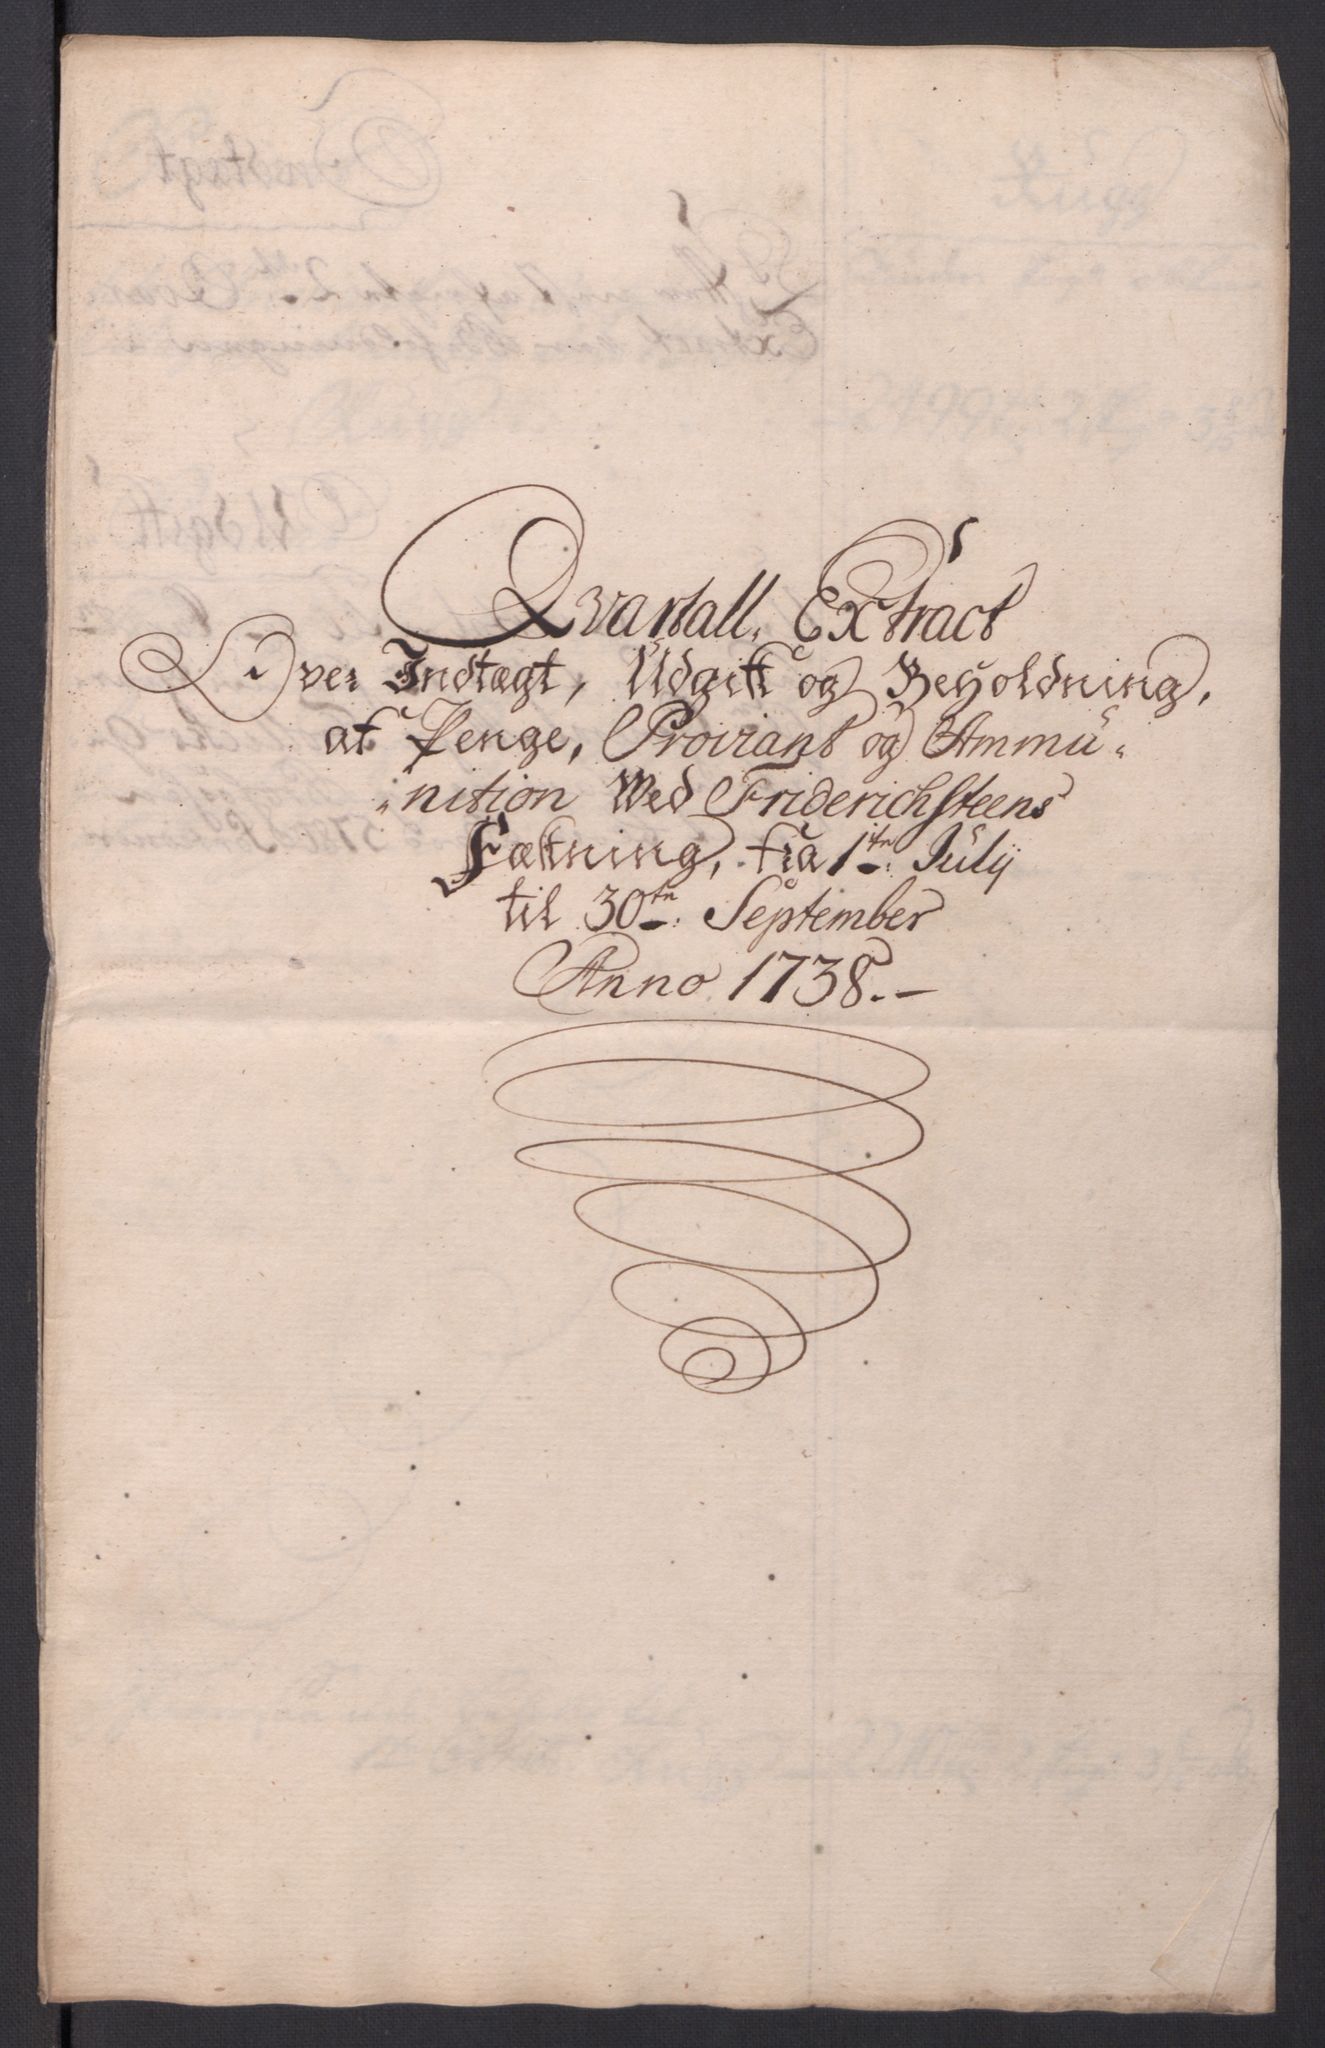 Qvartall. Extract
Over Indtægt, Udgift og Beholdning,
af Penge, Proviant og Ammu-
nition Ved Friderichsteens
Fæstning, fra 1te Julÿ
til 30te September
Anno 1738.-